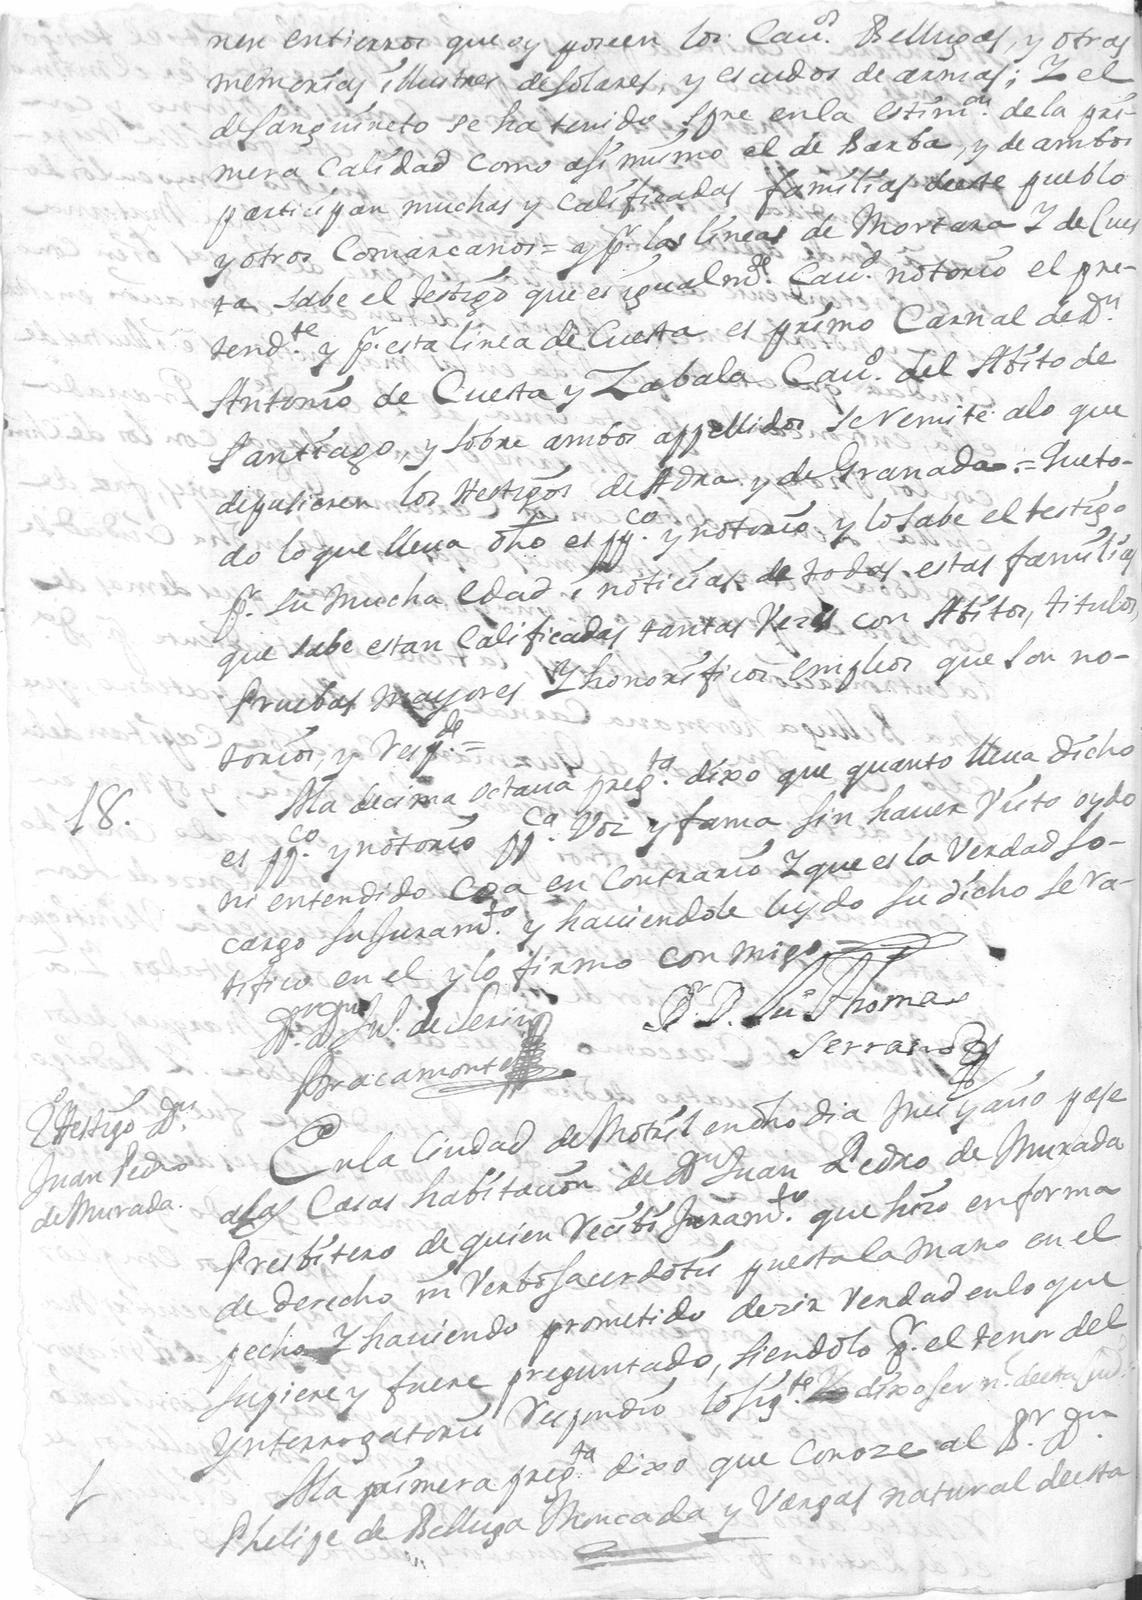 nen entierros que oy poseen los Cauos. Bellugas, y otras
memorias illustres de solares, y escudos de armas; Y el
de Sanguineto se ha tenido spre en la estimon. de la pri-
mera Calidad como asimismo el de Barba, y de ambos
participan muchas y calificadas familias deste pueblo
y otros Comarcanos = y pr. las lineas de Mortara Y de Cues
ta sabe el testigo que es igualmte. Cauo. notorio el pre-
tendte. y pr. esta linea de Cuesta es primo Carnal de Dn.
Antonio de Cuesta y Zabala Cauo. del Abito de
Santiago, y sobre ambos appellidos se remite alo que
depusieren los testigos de Adra y de Granada = Que to-
do lo que lleua dho es ppco. y notorio y lo sabe el testigo
pr. su mucha edad i noticias de todas estas familias
que sabe estan Calificadas tantas Vezes con Abitos, titulos,
Pruebas mayores Y honorificos empleos que son no-
torios, y respde. =
18. Ala decima octaua pregta. dixo que quanto lleua dicho
es ppco. y notorio ppca. Voz y fama sin hauer Visto oydo
ni entendido cosa en contrario Y que es la Verdad so-
cargo su Juramto. y hauiendole leydo su dicho se ra-
tifico en el y lo firmo con migo
de Leriz
Bracamonte
Thomas
Serrano
2º testigo Dn.
Juan Pedro
de Murada.
En la Ciudad de Motril en dho dia mes y año pase
alas Casas habitacion de Dn Juan Pedro de Murada
Presbitero de quien recibi Juramto. que hizo en forma
de derecho in Verbo sacerdotis puesta la mano en el
pecho Y hauiendo prometido dezir Verdad en lo que
supiere y fuere preguntado, siendolo pr. el tenor del
Ynterrogatorio respondio lo sigte. Y dixo ser
1 Ala primera pregta. dixo que conoze al Sr. Dn.
Phelipe de Belluga Moncada y Vargas natural de esta